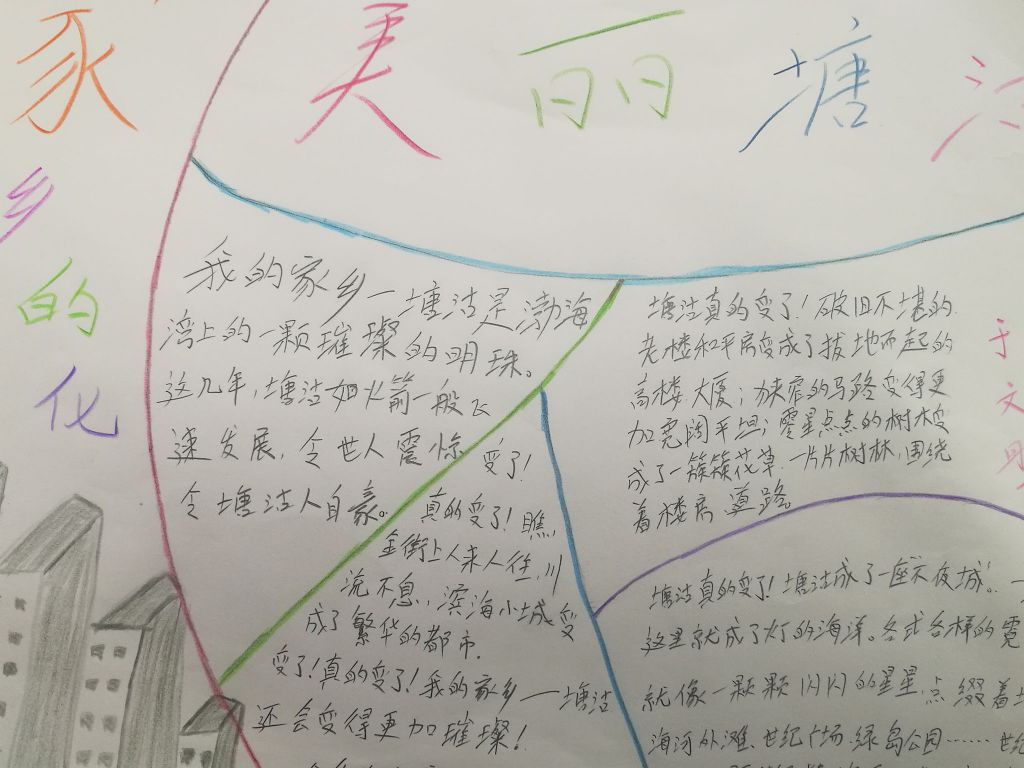 家
乡
的
化
美丽塘沽
我的家乡一塘沽是渤海
湾上的一颗璀璨的明珠。
这几年,塘沽如火箭一般飞
速发展,令世人震惊
令塘沽人自豪。
变了!
真的变了!瞧,
金街上人来人往,川
流不息,滨海小城变
成了繁华的都市.
变了!真的变了!我的家乡一塘沽
还会变得更加璀璨!
塘沽真的变了!破旧不堪的
老楼和平房变成了拔地而起的
高楼大厦;狭窄的马路变得更
加宽阔平坦;零星点点的树木变
成了一簇簇花草,一片片树林,围绕
着楼房道路。
于
文
塘沽真的变了!塘沽成了一座不夜城。一
这里就成了灯的海洋。各式各样的霓
就像一颗颗闪闪的星星,点缀着
海河外滩.世纪广场.绿岛公园……世纪